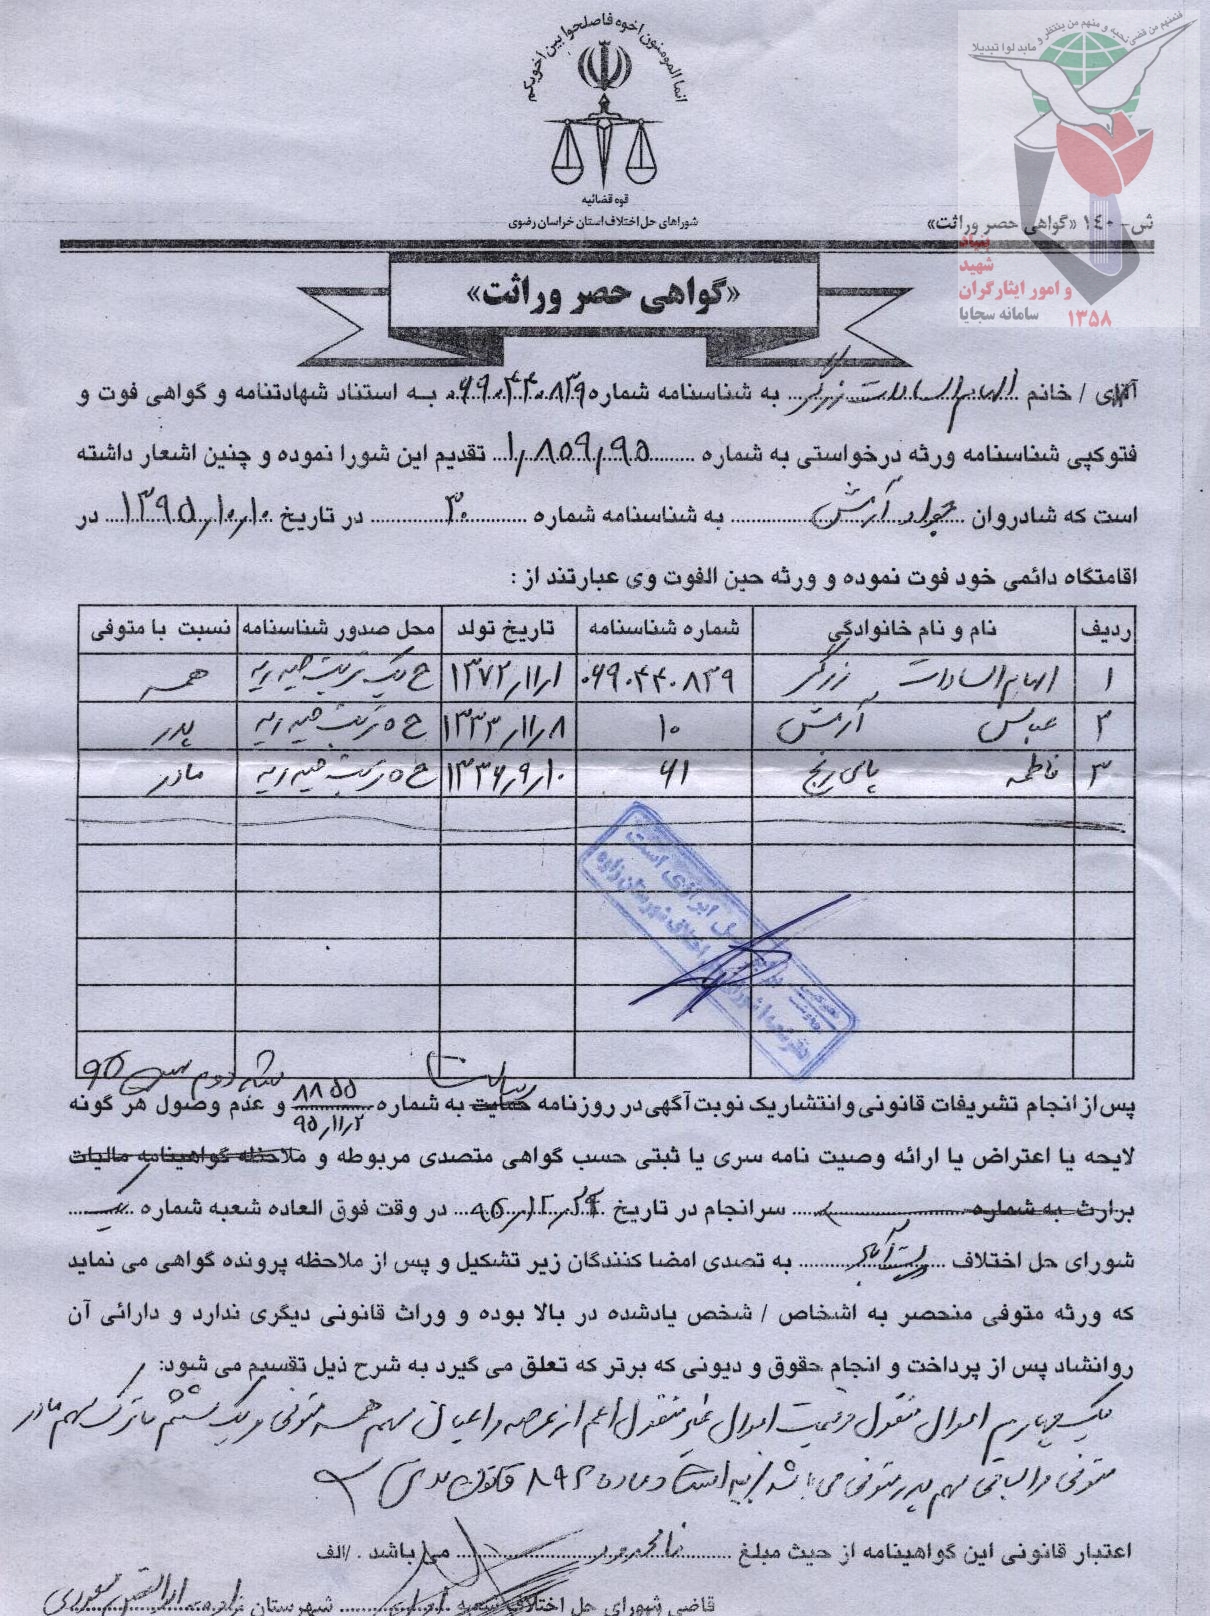 انما المومنون اخوه فاصلحوا بین اخویکم
قوه قضائیه
شوراهای حل اختلاف استان خراسان رضوی
فمنهم من قضی نحبه و منهم من ینتظر و ما بدلوا تبدیلا
بنیاد
شهید
و امور ایثارگران
سامانه سجایا ۱۳۵۸
ش-۱٤۰ «گواهی حصر وراثت»
«گواهی حصر وراثت»
آقای / خانم الهام السادات زرگر به شناسنامه شماره ۰۶۹۰۴۴۰۸۳۹ به استناد شهادتنامه و گواهی فوت و
فتوکپی شناسنامه ورثه درخواستی به شماره ۱٫۸۵۹٫۹۵ تقدیم این شورا نموده و چنین اشعار داشته
است که شادروان جواد آرمش به شناسنامه شماره ۳۰ در تاریخ ۱۳۹۵/۱۰/۱۰ در
اقامتگاه دائمی خود فوت نموده و ورثه حین الفوت وی عبارتند از :
ردیف نام و نام خانوادگی شماره شناسنامه تاریخ تولد محل صدور شناسنامه نسبت با متوفی
۱ الهام السادات زرگر ۰۶۹۰۴۴۰۸۳۹ ۱۳۷۲/۱۱/۱ ح یک تربت حیدریه همسر
۲ عباس آرمش ۱۰ ۱۳۳۳/۱۱/۸ ح ۵ تربت حیدریه پدر
۳ فاطمه پای رنج ۶۱ ۱۳۳۶/۹/۱۰ ح ۵ تربت حیدریه مادر
برابر اصل است
پس از انجام تشریفات قانونی وانتشاریک نوبت آگهی در روزنامه حمایت رسالت به شماره ۸۸۵۵ ۹۵/۱۱/۲ و عدم وصول هر گونه
لایحه یا اعتراض یا ارائه وصیت نامه سری یا ثبتی حسب گواهی متصدی مربوطه و ملاحظه گواهینامه مالیات
برارث به شماره سرانجام در تاریخ ۹۵/۱۲/۲۴ در وقت فوق العاده شعبه شماره یک
شورای حل اختلاف به تصدی امضا کنندگان زیر تشکیل و پس از ملاحظه پرونده گواهی می نماید
که ورثه متوفی منحصر به اشخاص / شخص یادشده در بالا بوده و وراث قانونی دیگری ندارد و دارائی آن
روانشاد پس از پرداخت و انجام حقوق و دیونی که برتر که تعلق می گیرد به شرح ذیل تقسیم می شود:
یک چهارم اموال منقول و قیمت اموال غیر منقول اعم از عرصه و اعیان سهم همسر متوفی و یک ششم ماترک سهم مادر
متوفی و الباقی سهم پدر متوفی می باشد قانون مدنی
اعتبار قانونی این گواهینامه از حیث مبلغ نامحدود می باشد . /الف
قاضی شورای حل اختلاف شهرستان